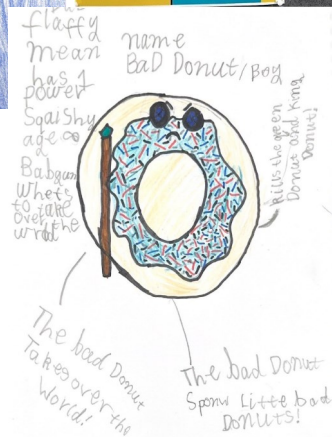 flaffy
mean
has 1
power
Sqaishy
age ∞
a
Babgum
Whets
to take
over the
wrld
name
BaD Donut/Boy
Kills the green
Donut and King
Donut!
The bad Donut
Takes over the
World!
The bad Donut
Sponw Litte bad
DONUTS!